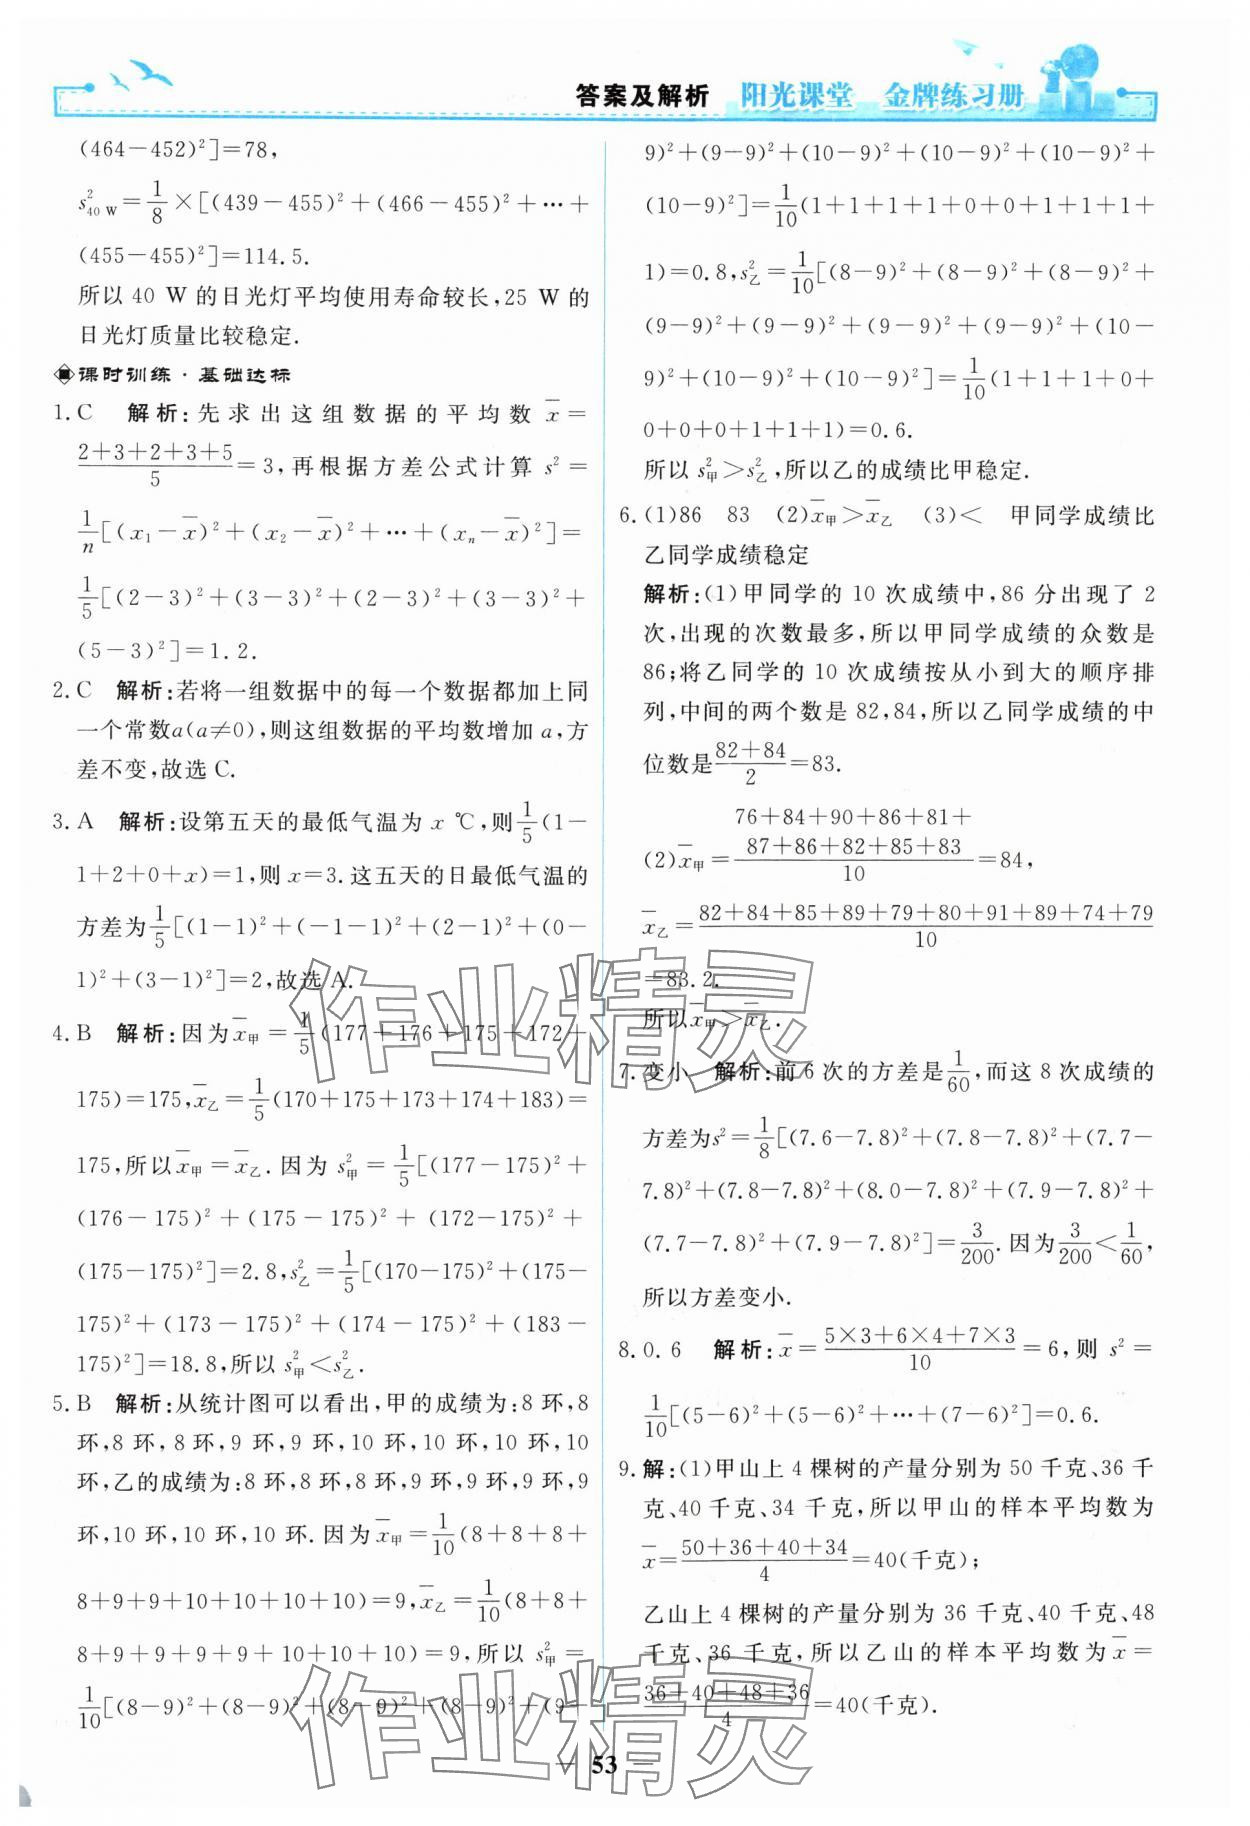 答案及解析 阳光课堂 金牌练习册
(464－452)²]=78,
s²₄₀ W=1/8×[(439－455)²+(466－455)²+…+
(455－455)²]=114.5.
所以 40 W 的日光灯平均使用寿命较长,25 W 的
日光灯质量比较稳定.
课时训练·基础达标
1.C 解析:先求出这组数据的平均数 x̄=
(2+3+2+3+5)/5=3,再根据方差公式计算 s²=
1/n[(x₁－x̄)²+(x₂－x̄)²+…+(xₙ－x̄)²]=
1/5[(2－3)²+(3－3)²+(2－3)²+(3－3)²+
(5－3)²]=1.2.
2.C 解析:若将一组数据中的每一个数据都加上同
一个常数a(a≠0),则这组数据的平均数增加 a,方
差不变,故选 C.
3.A 解析:设第五天的最低气温为 x ℃,则1/5(1－
1+2+0+x)=1,则 x=3.这五天的日最低气温的
方差为1/5[(1－1)²+(－1－1)²+(2－1)²+(0－
1)²+(3－1)²]=2,故选 A.
4.B 解析:因为x̄甲=1/5(177+176+175+172+
175)=175,x̄乙=1/5(170+175+173+174+183)=
175,所以x̄甲=x̄乙.因为 s²甲=1/5[(177－175)²+
(176－175)²+(175－175)²+(172－175)²+
(175－175)²]=2.8,s²乙=1/5[(170－175)²+(175－
175)²+(173－175)²+(174－175)²+(183－
175)²]=18.8,所以 s²甲<s²乙.
5.B 解析:从统计图可以看出,甲的成绩为:8 环,8
环,8 环,8 环,9 环,9 环,10 环,10 环,10 环,10
环,乙的成绩为:8 环,8 环,8 环,9 环,9 环,9 环,9
环,10 环,10 环,10 环.因为 x̄甲=1/10(8+8+8+
8+9+9+10+10+10+10)=9,x̄乙=1/10(8+8+
8+9+9+9+9+10+10+10)=9,所以 s²甲=
1/10[(8－9)²+(8－9)²+(8－9)²+(8－9)²+(9－
9)²+(9－9)²+(10－9)²+(10－9)²+(10－9)²+
(10－9)²]=1/10(1+1+1+1+0+0+1+1+1+
1)=0.8,s²乙=1/10[(8－9)²+(8－9)²+(8－9)²+
(9－9)²+(9－9)²+(9－9)²+(9－9)²+(10－
9)²+(10－9)²+(10－9)²]=1/10(1+1+1+0+
0+0+0+1+1+1)=0.6.
所以 s²甲>s²乙,所以乙的成绩比甲稳定.
6.(1)86 83 (2)x̄甲>x̄乙 (3)< 甲同学成绩比
乙同学成绩稳定
解析:(1)甲同学的 10 次成绩中,86 分出现了 2
次,出现的次数最多,所以甲同学成绩的众数是
86;将乙同学的 10 次成绩按从小到大的顺序排
列,中间的两个数是 82,84,所以乙同学成绩的中
位数是(82+84)/2=83.
(2)x̄甲=(76+84+90+86+81+87+86+82+85+83)/10=84,
x̄乙=(82+84+85+89+79+80+91+89+74+79)/10
=83.2.
所以x̄甲>x̄乙.
7.变小 解析:前 6 次的方差是1/60,而这 8 次成绩的
方差为s²=1/8[(7.6－7.8)²+(7.8－7.8)²+(7.7－
7.8)²+(7.8－7.8)²+(8.0－7.8)²+(7.9－7.8)²+
(7.7－7.8)²+(7.9－7.8)²]=3/200.因为3/200<1/60,
所以方差变小.
8.0.6 解析:x̄=(5×3+6×4+7×3)/10=6,则 s²=
1/10[(5－6)²+(5－6)²+…+(7－6)²]=0.6.
9.解:(1)甲山上 4 棵树的产量分别为 50 千克、36 千
克、40 千克、34 千克,所以甲山的样本平均数为
x̄=(50+36+40+34)/4=40(千克);
乙山上 4 棵树的产量分别为 36 千克、40 千克、48
千克、36 千克,所以乙山的样本平均数为 x̄=
(36+40+48+36)/4=40(千克).
— 53 —
作业精灵
作业精灵